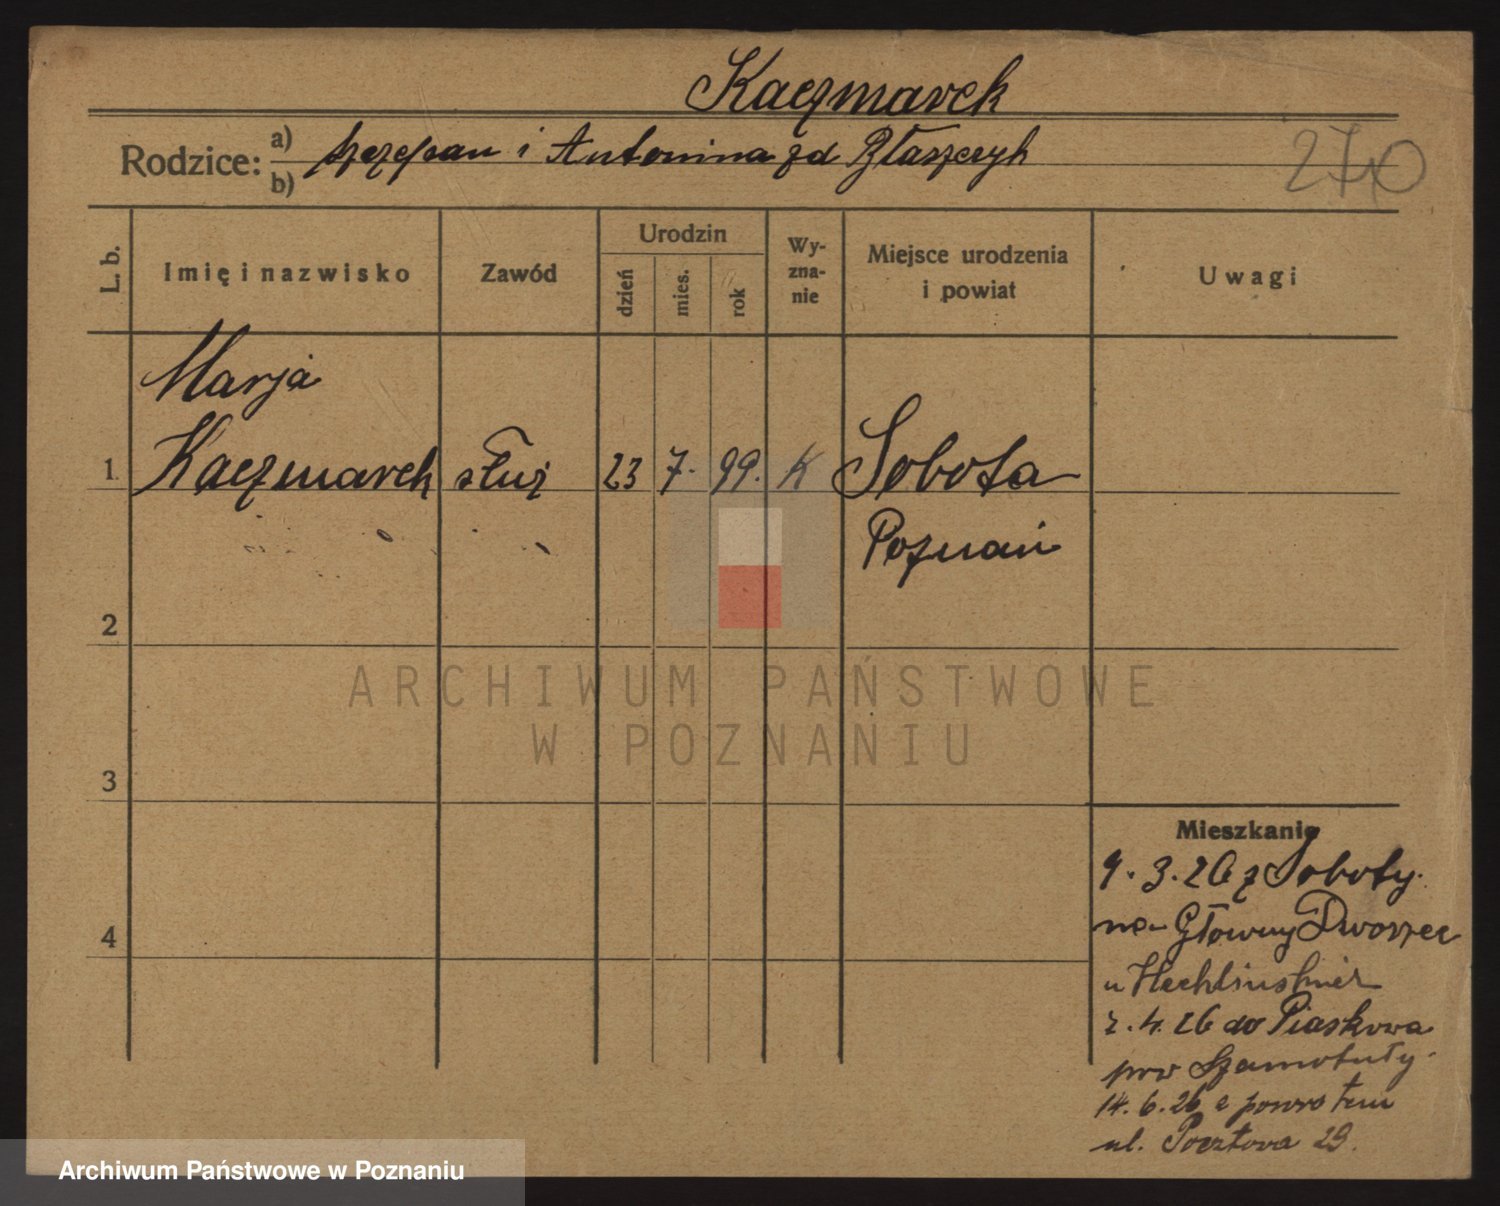 Kaczmarek
Rodzice: a) Szczepan i Antonina zd Błaszczyk
b)
270
L. b. Imię i nazwisko Zawód Urodzin dzień mies. rok Wyzna-nie Miejsce urodzenia i powiat Uwagi
Marja
1. Kaczmarek służ 23 7. 99. K Sobota
Poznań
2
ARCHIWUM PAŃSTWOWE
W POZNANIU
3
4
Mieszkanie
9.3.26 z Soboty.
na Główny Dworzec
u
2.4.26 do Piaskowa
pow Szamotuły.
14.6.26 z powrotem
ul. Pocztowa 29.
Archiwum Państwowe w Poznaniu